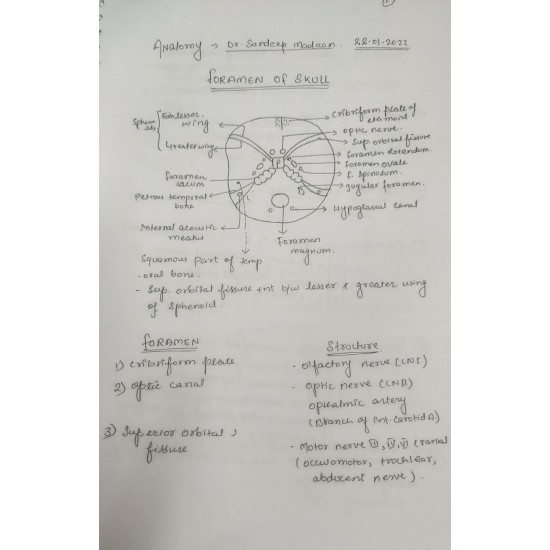 1
Anatomy → Dr. Sandeep Madaan. 22.01.2022
FORAMEN OF SKULL
lesser wing
Greater wing
foramen
Petrous temporal bone
Internal acoustic meatus
Cribriform plate of ethmoid
optic nerve.
Sup. orbital fissure
foramen Rotendum.
foramen ovale
f. spinosum.
Jugular foramen.
Hypoglossal canal
Foramen magnum.
Squamous part of temp
-oral bone.
- Sup. orbital fissure +nt b/w lesser & greater wing
of Sphenoid.
FORAMEN Structure
1) Cribriform plate - Olfactory nerve (CNI)
2) Optic canal - Optic nerve (CNII)
opthalmic artery
(Branch of Int. Carotid A)
3) Superior orbital fissure - Motor nerve III, IV, VI cranial
(occulomotor, trochlear,
abducent nerve).